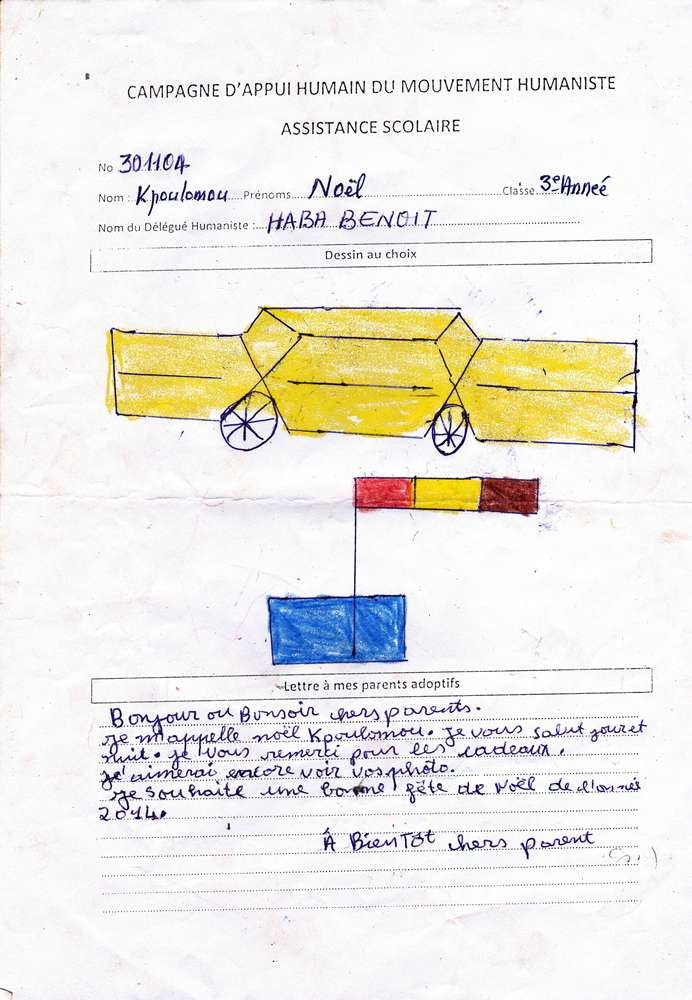 CAMPAGNE D'APPUI HUMAIN DU MOUVEMENT HUMANISTE
ASSISTANCE SCOLAIRE
No 301104
Nom : Kpoulomou Prénoms Noël Classe 3e Anneé
Nom du Délégué Humaniste : HABA BENOIT
Dessin au choix
Lettre à mes parents adoptifs
Bonjour ou Bonsoir chers parents.
Je m'appelle noël Kpoulomou. Je vous salut jour et
nuit. je vous remerci pour les cadeaux.
J'aimerai encore voir vos photo.
Je souhaite une bonne fête de Noël de l'année
2014.
À BienTôt chers parent